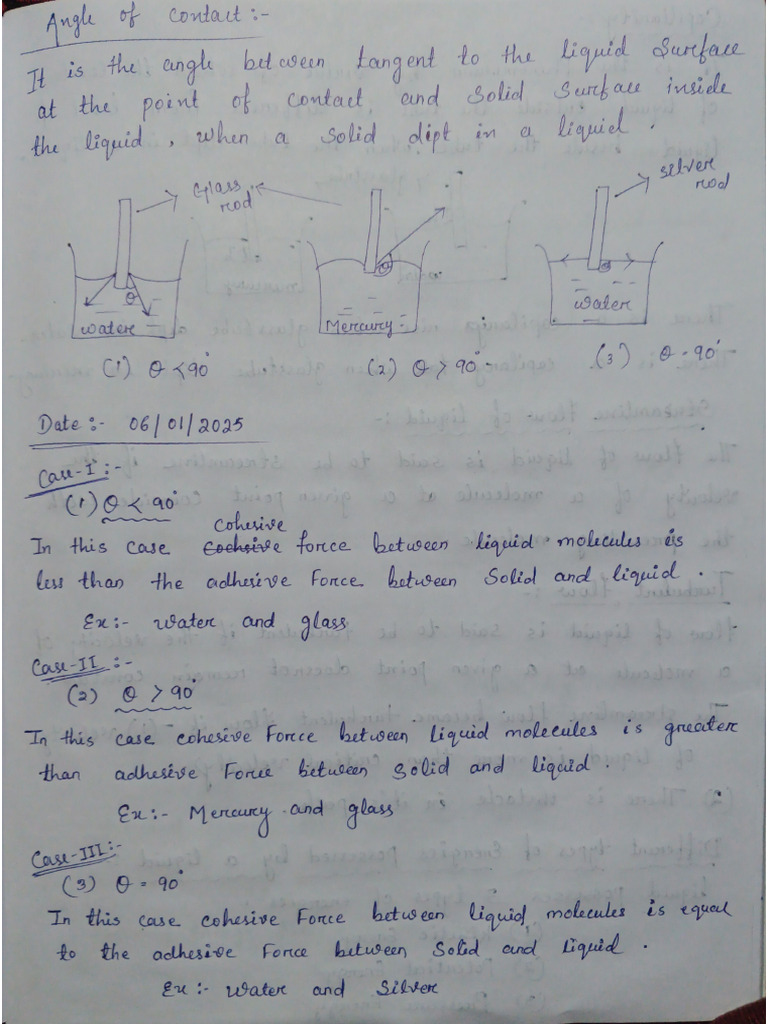 Angle of contact :-
It is the angle between tangent to the liquid surface
at the point of contact and solid surface inside
the liquid, when a solid dipt in a liquid.
Glass rod
silver rod
θ
θ
θ
water
Mercury
water
(1) θ < 90°
(2) θ > 90°
(3) θ = 90°
Date :- 06/01/2025
Case-I :-
(1) θ < 90°
cohesive
In this case cochsive force between liquid molecules is
less than the adhesive Force between Solid and liquid.
Ex :- water and glass
Case-II :-
(2) θ > 90°
In this case cohesive Force between liquid molecules is greater
than adhesive Force between Solid and liquid.
Ex :- Mercury and glass
Case-III :-
(3) θ = 90°
In this case cohesive Force between liquid molecules is equal
to the adhesive Force between Solid and Liquid.
Ex :- Water and Silver